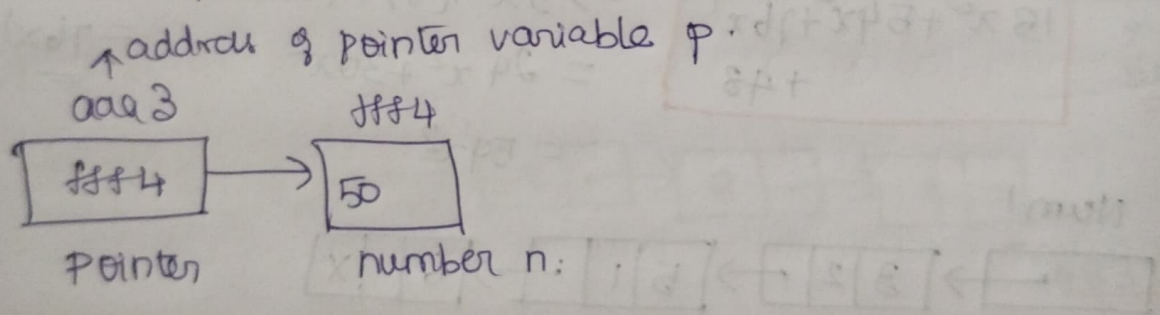 ↑ address of pointer variable p.
aaa3 fff4
fff4 50
pointer number n: